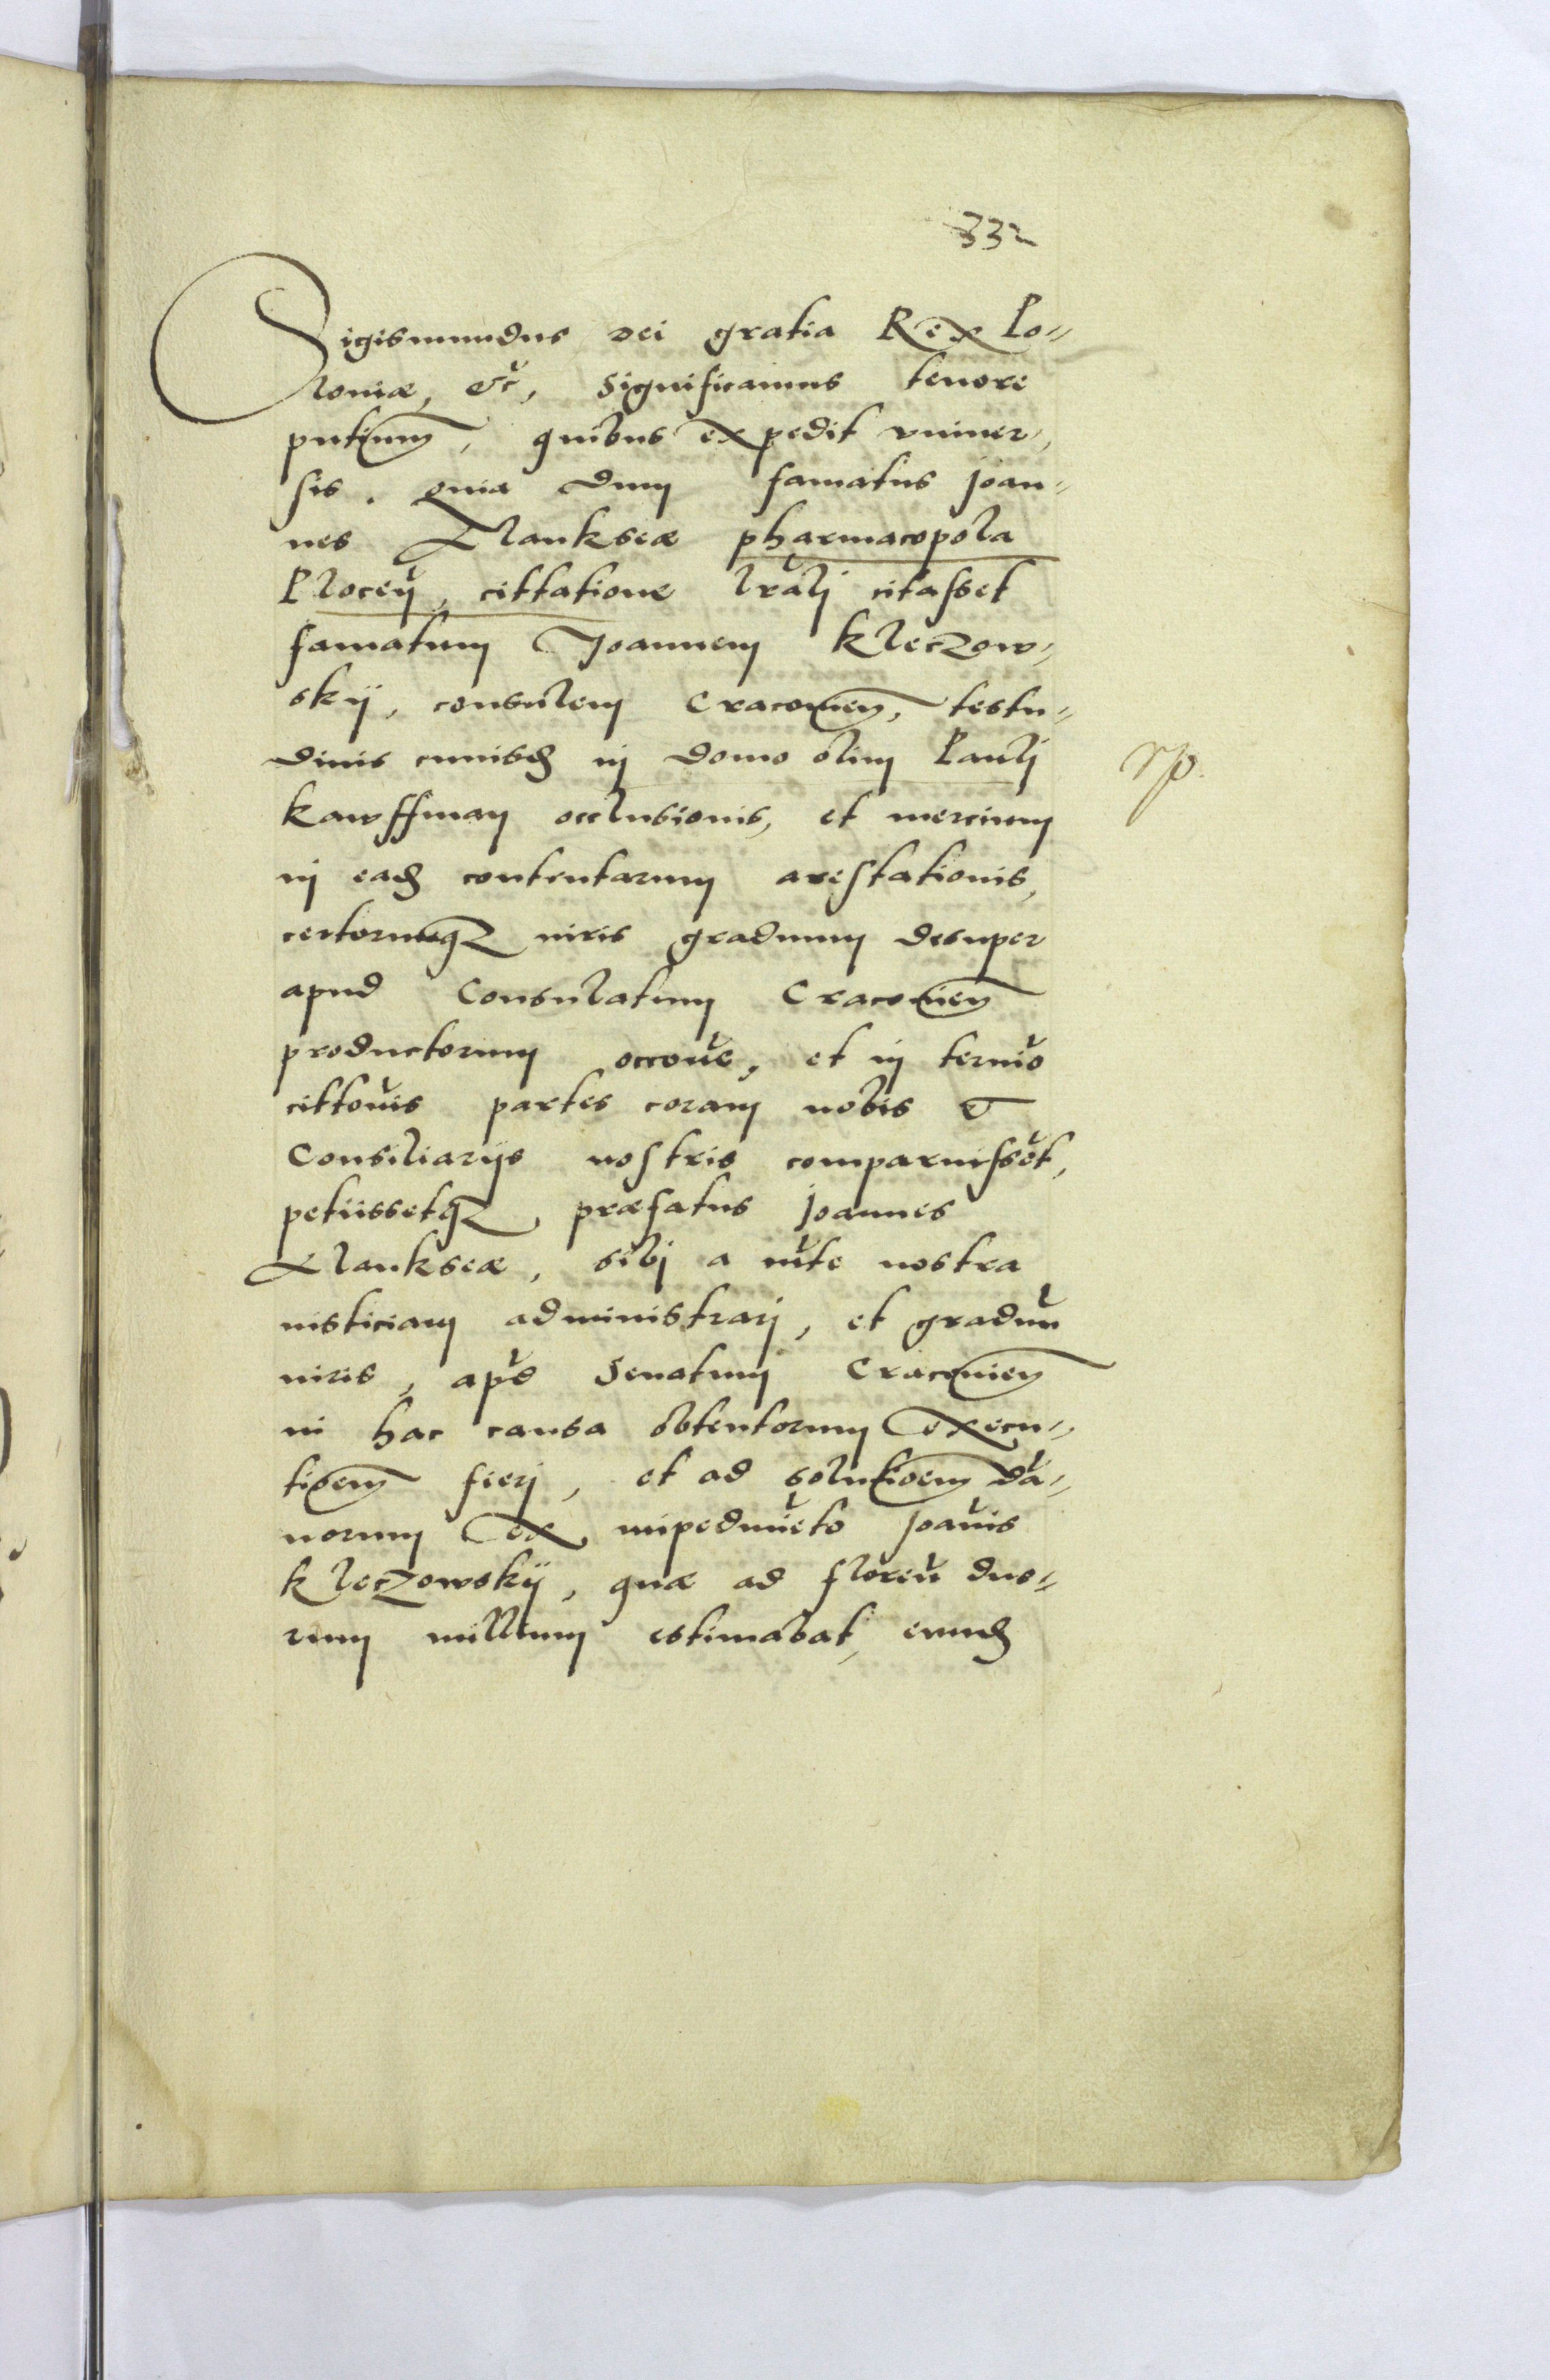 332
Sigismundus dei gratia Rex Po=
loniæ, &c, Significamus tenore
pntium, quibus expedit vniuer,
sis. quia dum famatus Joan=
nes Alankseæ pharmacopola
Plocen, cittatione lralj citasset
famatum Joannem Kleczow=
skij, consulem Cracouien, testu=
dinis cuiusd in domo olim Paulj
Kawffman occlusionis, et mercium
in ead contentarum arestationis,
certorumq iuris graduum desuper
apud Consulatum Cracouien
productorum occone, et in termo
cittonis partes coram nobis &
Consiliarijs nostris comparuisset,
petiissetq, præfatus Joannes
Alankseæ, sibj a mte nostra
iusticiam administrarj, et graduu
iuris, apd Senatum Cracouien
in hac causa obtentorum execu=
tioem fierj, et ad solutioem da=
norum ex impedimeto Joanis
Kleczowskij, quæ ad floren duo=
rum millium estimabat, eund